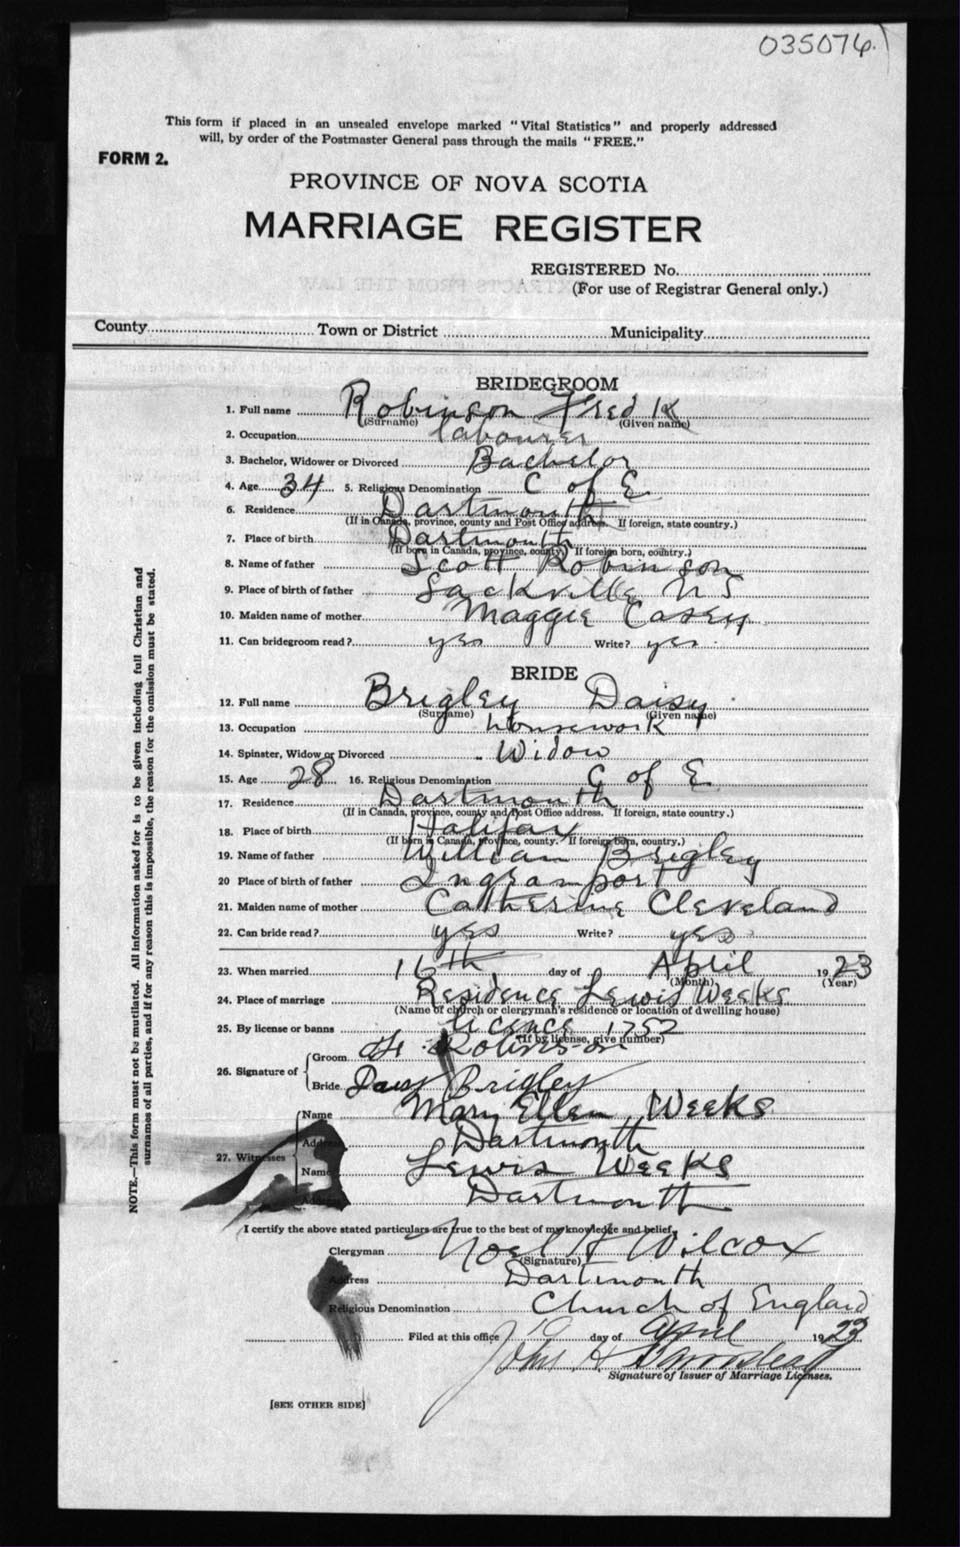 035076.
This form if placed in an unsealed envelope marked "Vital Statistics" and properly addressed
will, by order of the Postmaster General pass through the mails "FREE."
FORM 2.
PROVINCE OF NOVA SCOTIA
MARRIAGE REGISTER
REGISTERED No.
(For use of Registrar General only.)
County Town or District Municipality
BRIDEGROOM
1. Full name Robinson Fred K
(Surname) (Given name)
2. Occupation labourer
3. Bachelor, Widower or Divorced Bachelor
4. Age 34 5. Religious Denomination C of E
6. Residence Dartmouth
(If in Canada, province, county and Post Office address. If foreign, state country.)
7. Place of birth Dartmouth
(If born in Canada, province, county. If foreign born, country.)
8. Name of father Scott Robinson
9. Place of birth of father Sackville N S
10. Maiden name of mother Maggie Casey
11. Can bridegroom read? yes Write? yes
BRIDE
12. Full name Brigley Daisy
(Surname) (Given name)
13. Occupation housework
14. Spinster, Widow or Divorced Widow
15. Age 28 16. Religious Denomination C of E
17. Residence Dartmouth
(If in Canada, province, county and Post Office address. If foreign, state country.)
18. Place of birth Halifax
(If born in Canada, province, county. If foreign born, country.)
19. Name of father William Brigley
20 Place of birth of father Ingramport
21. Maiden name of mother Catherine Cleveland
22. Can bride read? yes Write? yes
23. When married 16th day of April 1923
(Month) (Year)
24. Place of marriage Residence Lewis Weeks
(Name of church or clergyman's residence or location of dwelling house)
25. By license or banns licence 1752
(If by license, give number)
26. Signature of Groom Robinson
Bride Daisy Brigley
27. Witnesses Name Mary Ellen Weeks
Address Dartmouth
Name Lewis Weeks
Address Dartmouth
I certify the above stated particulars are true to the best of my knowledge and belief.
Clergyman Noel H Wilcox
(Signature)
Address Dartmouth
Religious Denomination Church of England
Filed at this office day of April 1923
John H
Signature of Issuer of Marriage Licenses.
[SEE OTHER SIDE]
NOTE.—This form must not be mutilated. All information asked for is to be given including full Christian and
surnames of all parties, and if for any reason this is impossible, the reason for the omission must be stated.